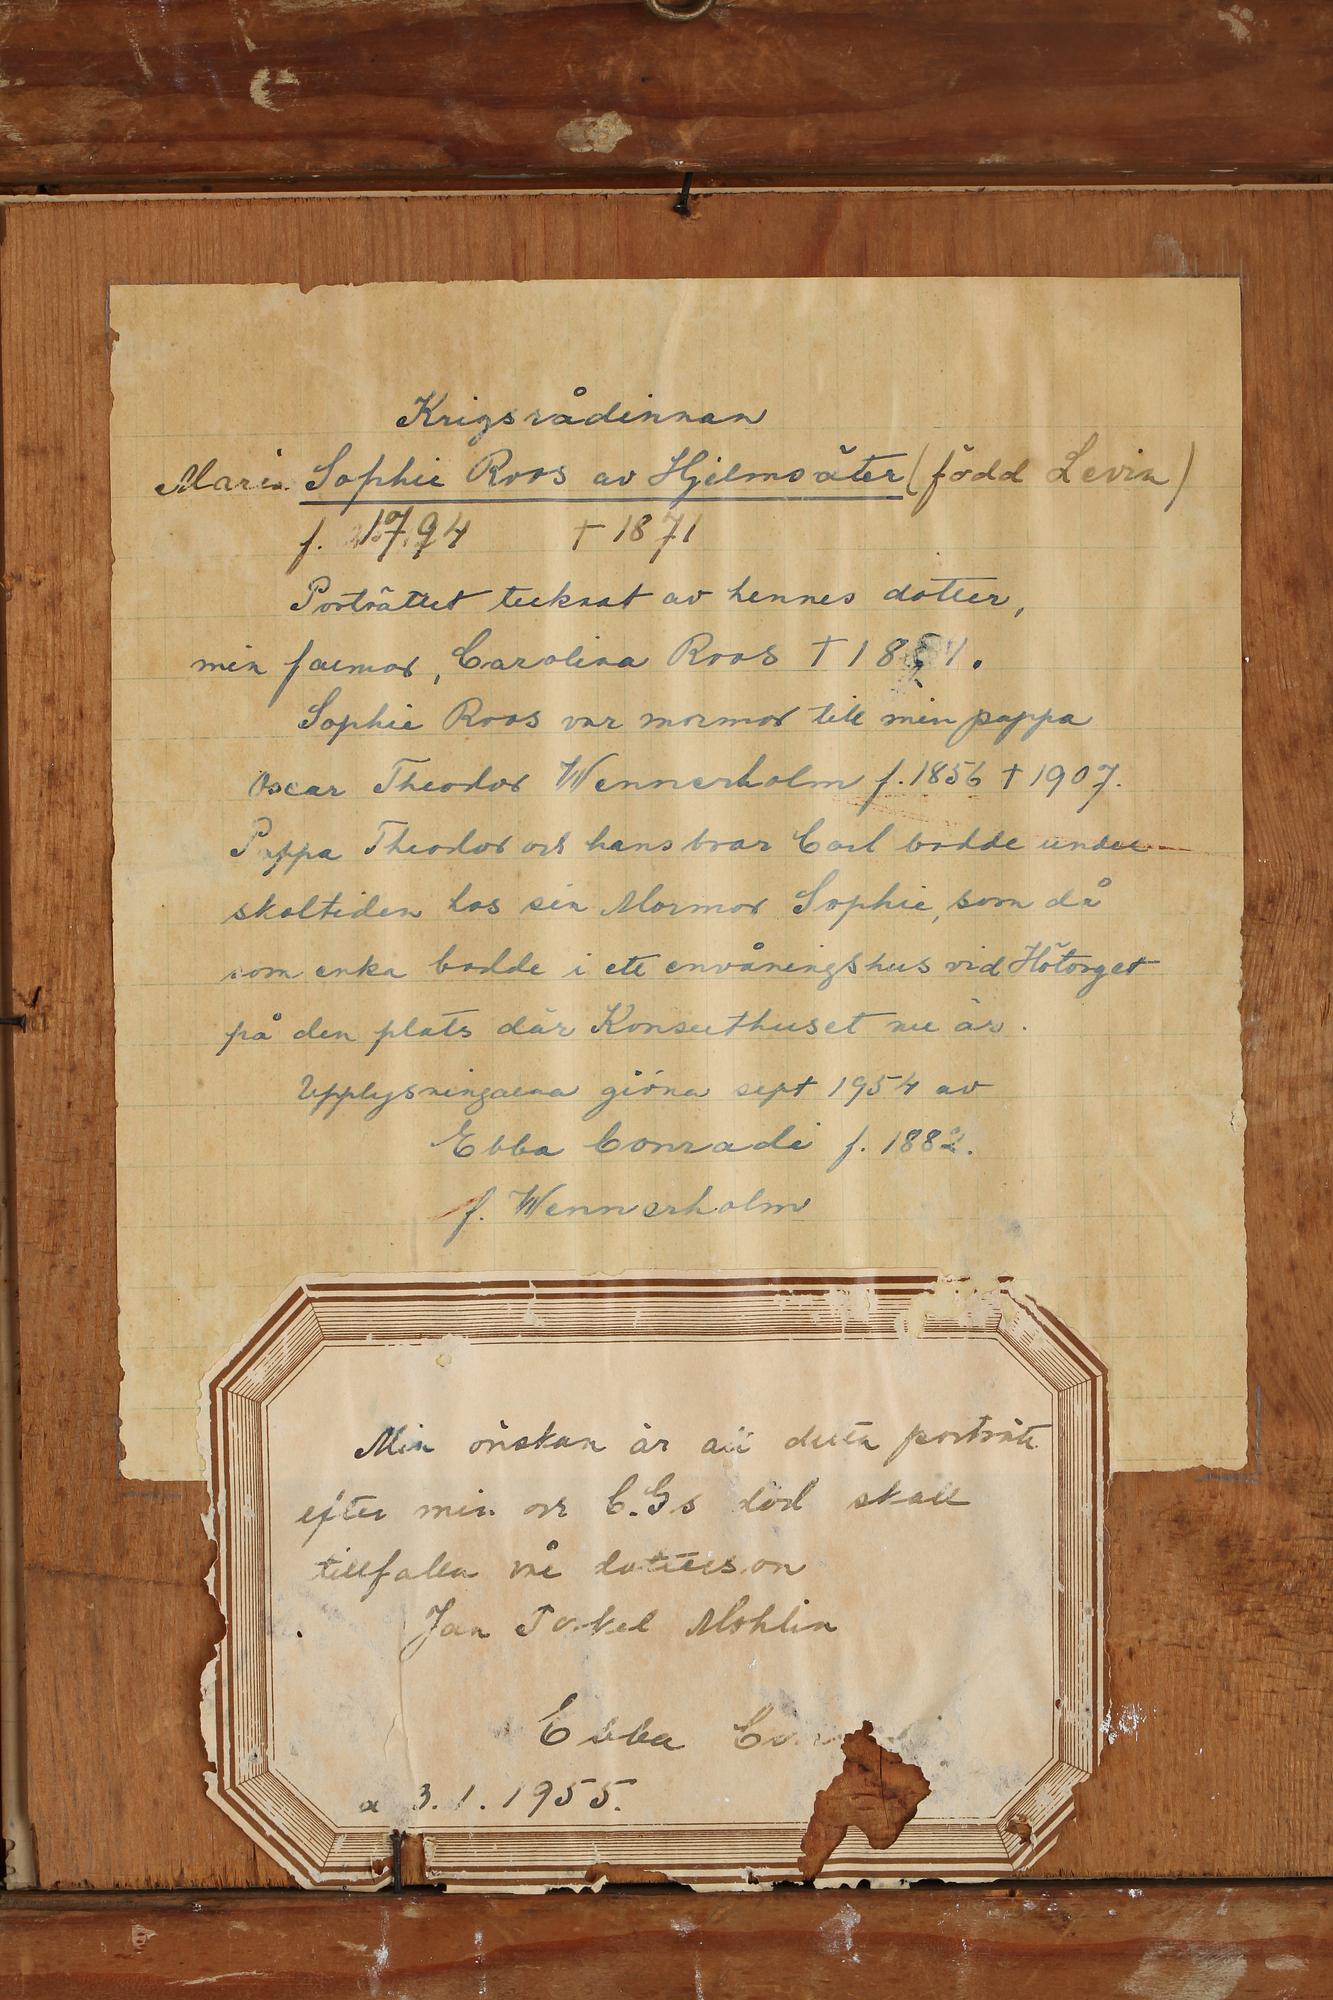 Krigsrådinnan
Maria Sophie Roos av Hjelmsäter (född Levin)
f. 1794 † 1871
Porträttet tecknat av hennes dotter,
min farmor, Carolina Roos †
Sophie Roos var mormor till min pappa
Oscar Theodor Wennerholm f. 1856 † 1907.
Pappa Theodor och hans bror Carl bodde under
skoltiden hos sin Mormor Sophie, som då
som enka bodde i ett envåningshus vid Hötorget
på den plats där Konserthuset nu är.
Upplysningarna gjorda sept 1954 av
Ebba Conradi f. 1882.
f. Wennerholm
Min önskan är att detta porträtt
efter min och C.G:s död skall
tillfalla vår dotterson
Jan Torkel Mohlin
Ebba
3.1.1955.